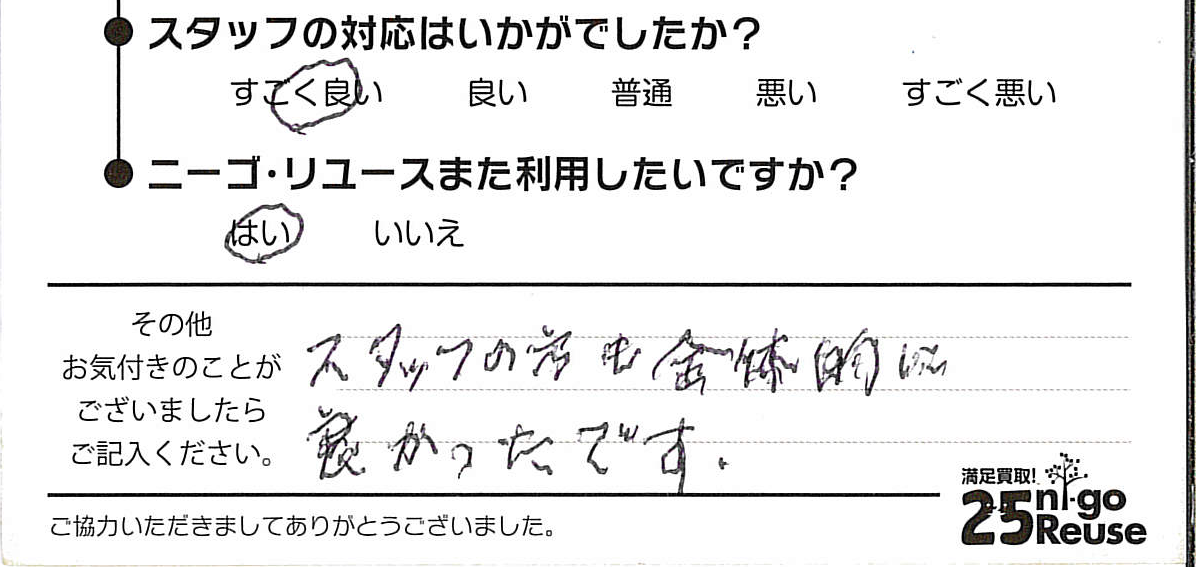 スタッフの対応はいかがでしたか？
すごく良い 良い 普通 悪い すごく悪い
ニーゴ・リユースまた利用したいですか？
はい いいえ
その他
お気付きのことが
ございましたら
ご記入ください。
スタッフの方も全体的に
良かったです.
ご協力いただきましてありがとうございました。
満足買取!
25 ni-go
Reuse